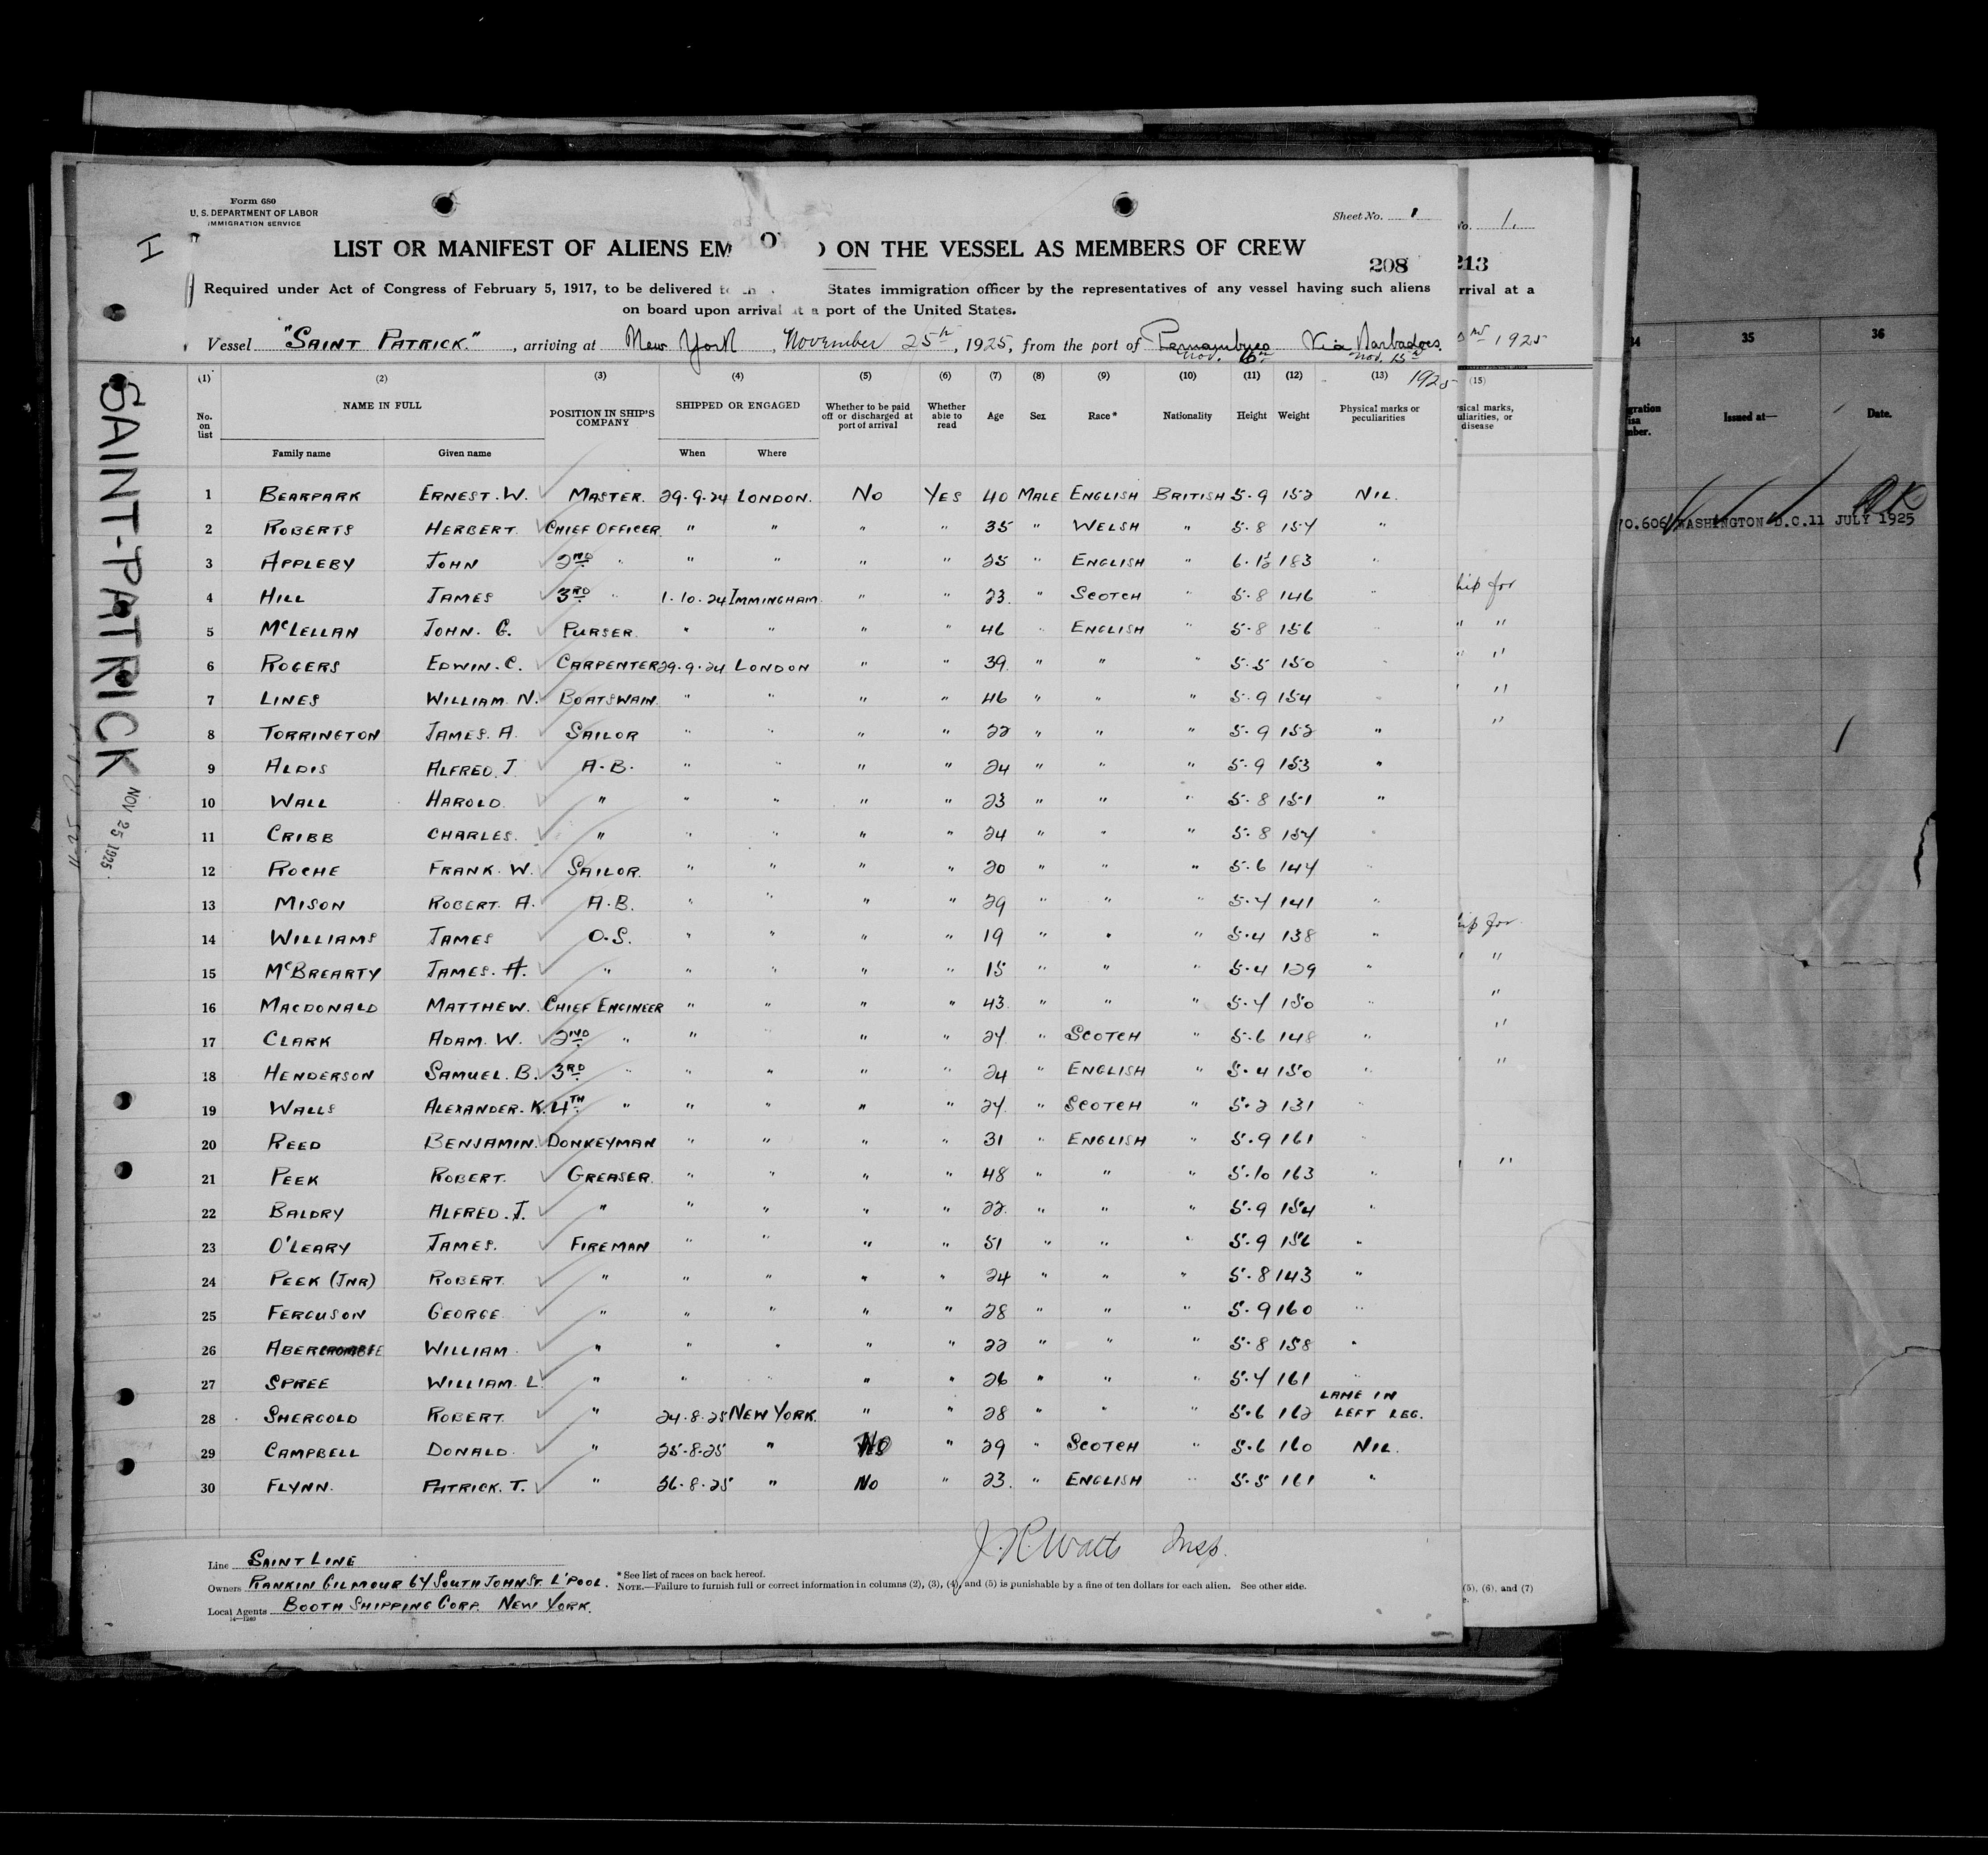 Form 680
U. S. DEPARTMENT OF LABOR
IMMIGRATION SERVICE
Sheet No. 1
LIST OR MANIFEST OF ALIENS EM O ON THE VESSEL AS MEMBERS OF CREW
208
Required under Act of Congress of February 5, 1917, to be delivered States immigration officer by the representatives of any vessel having such aliens
on board upon arrival at a port of the United States.
Vessel "SAINT PATRICK." , arriving at New York , November 25th , 1925, from the port of Pernambuco Via Barbadoes.
Nov. 6th Nov. 15th
1925
(1) (2) (3) (4) (5) (6) (7) (8) (9) (10) (11) (12) (13)
No. on list NAME IN FULL POSITION IN SHIP'S COMPANY SHIPPED OR ENGAGED Whether to be paid off or discharged at port of arrival Whether able to read Age Sex Race* Nationality Height Weight Physical marks or peculiarities
Family name Given name When Where
1 BEARPARK ERNEST. W. MASTER. 29.9.24 LONDON. NO YES 40 MALE ENGLISH BRITISH 5.9 152 NIL.
2 ROBERTS HERBERT CHIEF OFFICER " " " " 35 " WELSH " 5.8 154 "
3 APPLEBY JOHN 2ND " " " " " 25 " ENGLISH " 6.1½ 183 "
4 HILL JAMES 3RD " 1.10.24 IMMINGHAM " " 23 " SCOTCH " 5.8 146 "
5 McLELLAN JOHN. G. PURSER. " " " " 46 " ENGLISH " 5.8 156 "
6 ROGERS EDWIN. C. CARPENTER 29.9.24 LONDON " " 39 " " " 5.5 150 "
7 LINES WILLIAM. N. BOATSWAIN. " " " " 46 " " " 5.9 154 "
8 TORRINGTON JAMES. A. SAILOR " " " " 22 " " " 5.9 152 "
9 ALDIS ALFRED. J. A.B. " " " " 24 " " " 5.9 153 "
10 WALL HAROLD. " " " " " 23 " " " 5.8 151 "
11 CRIBB CHARLES. " " " " " 24 " " " 5.8 154 "
12 ROCHE FRANK. W. SAILOR. " " " " 20 " " " 5.6 144 "
13 MISON ROBERT. A. A.B. " " " " 29 " " " 5.4 141 "
14 WILLIAMS JAMES O.S. " " " " 19 " " " 5.4 138 "
15 McBREARTY JAMES. A. " " " " " 15 " " " 5.4 129 "
16 MACDONALD MATTHEW. CHIEF ENGINEER " " " " 43 " " " 5.4 150 "
17 CLARK ADAM. W. 2ND " " " " " 24 " SCOTCH " 5.6 148 "
18 HENDERSON SAMUEL. B. 3RD " " " " " 24 " ENGLISH " 5.4 150 "
19 WALLS ALEXANDER. K. 4TH " " " " " 24 " SCOTCH " 5.2 131 "
20 REED BENJAMIN. DONKEYMAN " " " " 31 " ENGLISH " 5.9 161 "
21 PEEK ROBERT. GREASER. " " " " 48 " " " 5.10 163 "
22 BALDRY ALFRED. J. " " " " " 22 " " " 5.9 154 "
23 O'LEARY JAMES. FIREMAN " " " " 51 " " " 5.9 156 "
24 PEEK (JNR) ROBERT " " " " " 24 " " " 5.8 143 "
25 FERGUSON GEORGE " " " " " 28 " " " 5.9 160 "
26 ABERCROMBIE WILLIAM " " " " " 22 " " " 5.8 158 "
27 SPREE WILLIAM. L. " " " " " 26 " " " 5.4 161 "
28 SHERGOLD ROBERT. " 24.8.25 NEW YORK. " " 28 " " " 5.6 162 LAME IN LEFT LEG.
29 CAMPBELL DONALD. " 25.8.25 " NO " 29 " SCOTCH " 5.6 160 NIL.
30 FLYNN. PATRICK. T. " 26.8.25 " NO " 23. " ENGLISH " 5.5 161 "
J. R. Watts Insp.
Line SAINT LINE
Owners RANKIN GILMOUR 64 SOUTH JOHN ST. L'POOL.
Local Agents BOOTH SHIPPING CORP. NEW YORK.
14—1240
* See list of races on back hereof.
NOTE.—Failure to furnish full or correct information in columns (2), (3), (4), and (5) is punishable by a fine of ten dollars for each alien. See other side.
H
SAINT-PATRICK
NOV 25 1925
No. 1.
213
rrival at a
1925
(15)
sical marks,
uliarities, or
disease
ship for
" "
" "
"
"
ship for
" "
"
"
"
"
(5), (6), and (7)
34 35 36
gration
isa
mber. Issued at— Date.
OK
70.606 WASHINGTON D.C. 11 JULY 1925